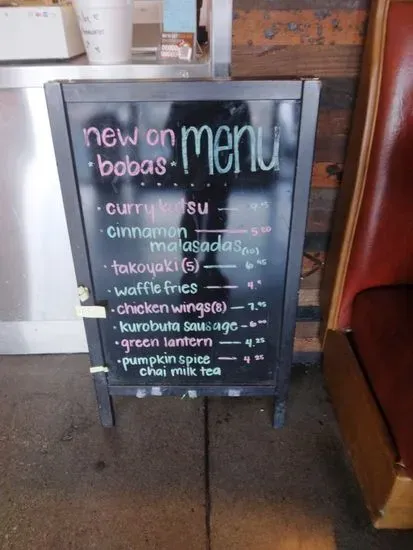 new on menu
*bobas*
• curry katsu — 9.95
• cinnamon malasadas (10) — 5.50
• takoyaki (5) — 6.45
• waffle fries — 4.
• chicken wings (8) — 7.95
• kurobuta sausage — 6.00
• green lantern — 4.25
• pumpkin spice — 4.25
chai milk tea